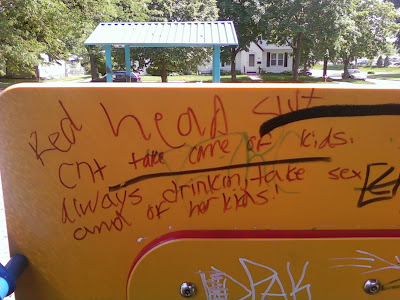 Red head slut
cnt take care of kids.
always drinkin, take sex
and of her kids!